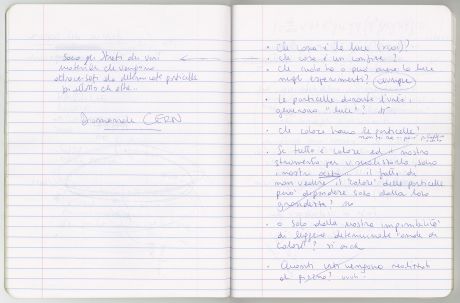 sono gli strati dei vari
materiali che vengono
attraversati da determinate particelle
piuttosto che altre...
Domande CERN
• Che cosa è la luce (x voi)?
• Che cosa è un confine?
• Che ruolo ha o può avere la luce
negli esperimenti?
• Le particelle durante l'urto,
generano "luce"? sì
• Che colore hanno le particelle?
• Se tutto è colore ed il nostro
strumento per visualizzarlo sono
i nostri occhi, il fatto di
non vedere il "colore" delle particelle
può dipendere solo dalla loro
grandezza? no
• o solo dalla nostra impossibilità
di leggere determinate "onde di
colore"? sì anche
• Quanti urti vengono realizzati
al giorno?